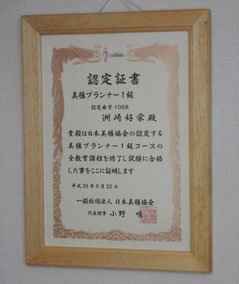 認定証書
美腸プランナー1級
認定番号 1068
洲崎好栄殿
貴殿は日本美腸協会の認定する
美腸プランナー1級コースの
全教育課程を修了し試験に合格
した事をここに証明します
平成28年6月22日
一般社団法人 日本美腸協会
代表理事 小野 咲